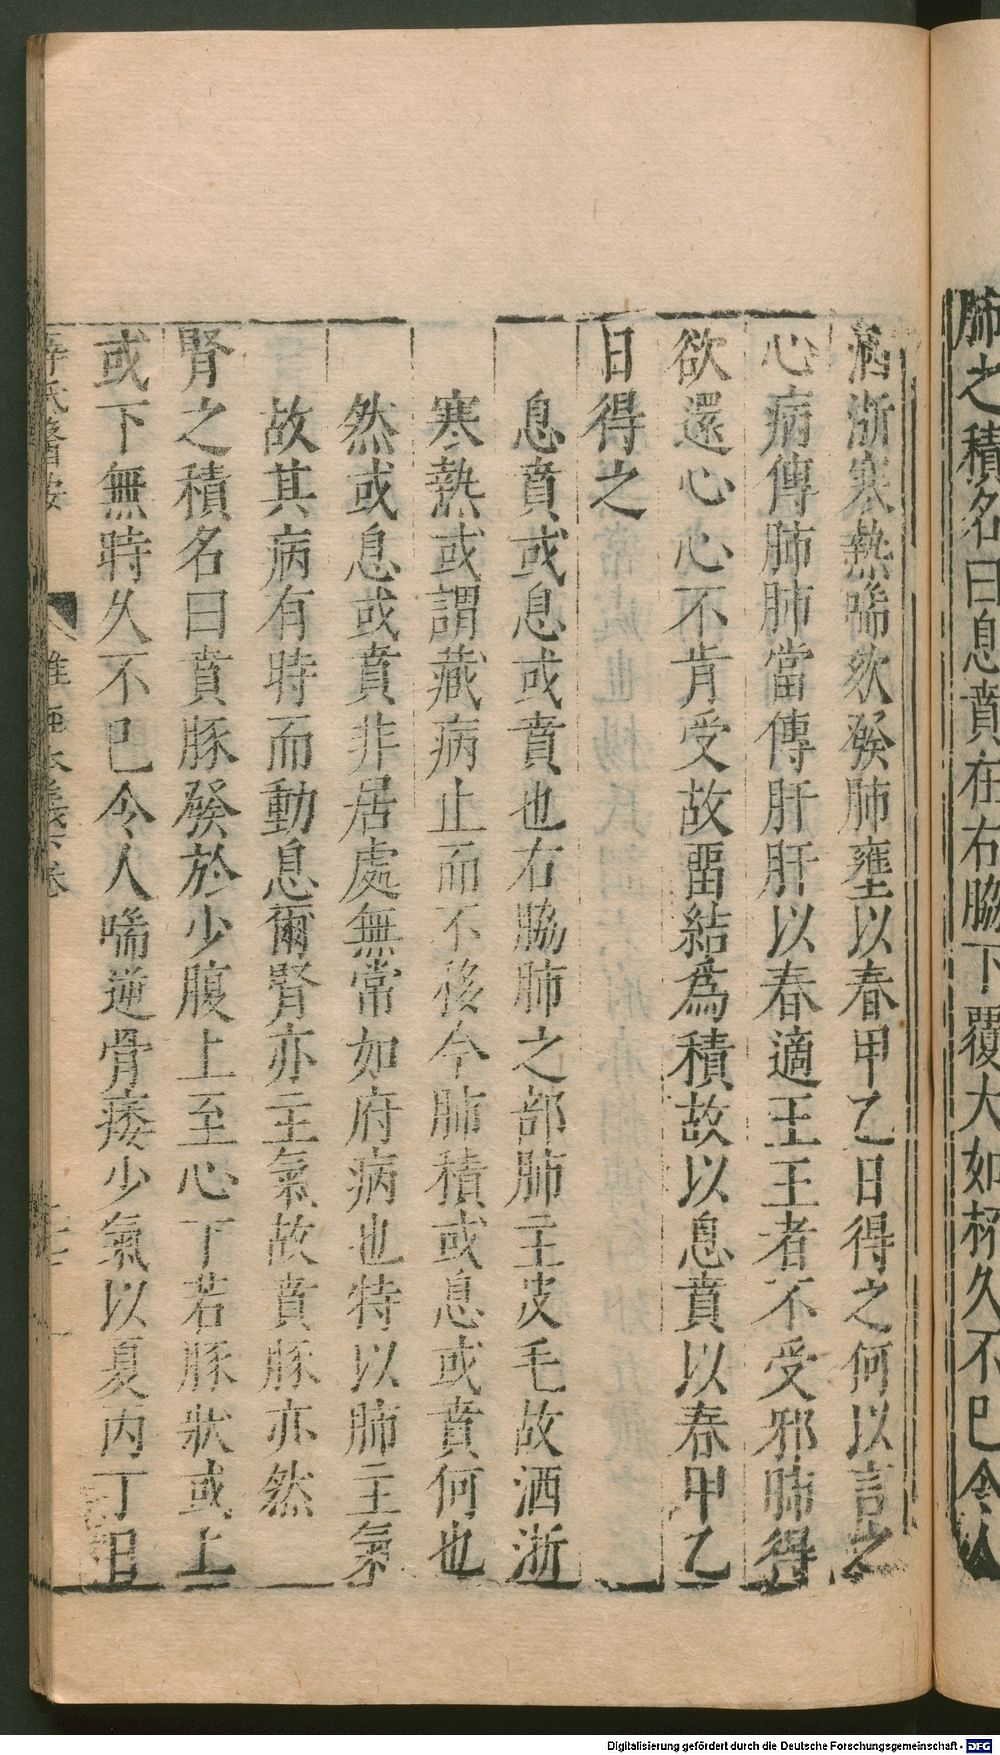 肺之積名曰息賁在右脇下覆大如杯久不已令人
洒淅寒熱喘欬發肺壅以春甲乙日得之何以言之
心病傳肺肺當傳肝肝以春適王王者不受邪肺得
欲還心心不肯受故畱結爲積故以息賁以春甲乙
日得之
息賁或息或賁也右脇肺之部肺主皮毛故洒淅
寒熱或謂藏病止而不移今肺積或息或賁何也
然或息或賁非居處無常如府病也特以肺主氣
故其病有時而動息爾腎亦主氣故賁豚亦然
腎之積名曰賁豚發於少腹上至心下若豚狀或上
或下無時久不已令人喘逆骨痿少氣以夏丙丁日
薛氏醫按 難經本義下卷
Digitalisierung gefördert durch die Deutsche Forschungsgemeinschaft - DFG